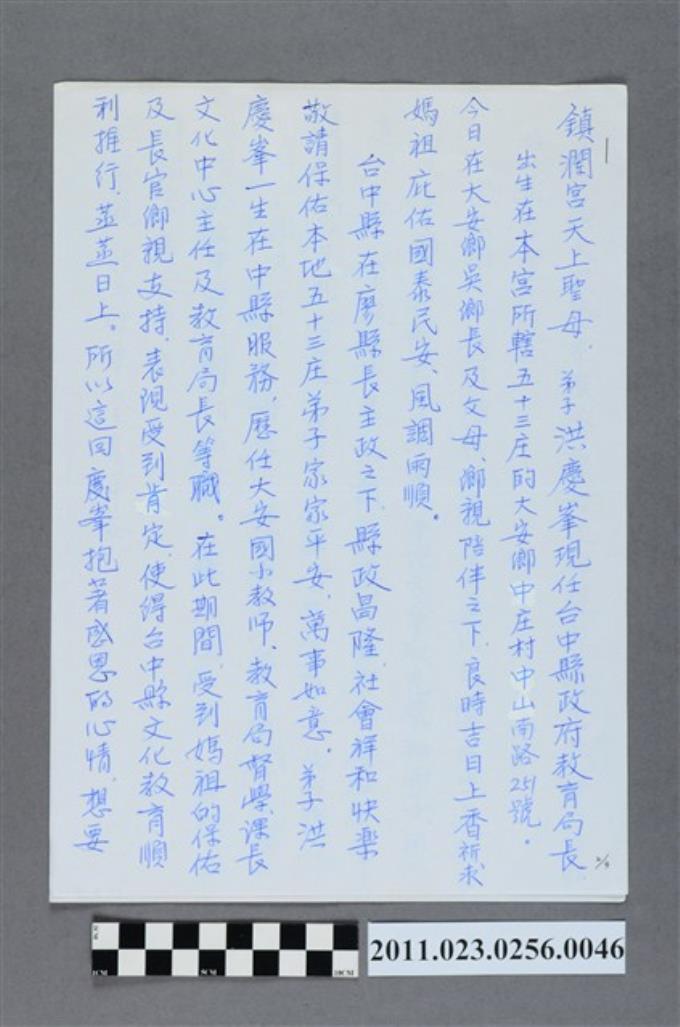 鎮瀾宮天上聖母、弟子洪慶峯現任台中縣政府教育局長
出生在本宮所轄五十三庄的大安鄉中庄村中山南路251號。
今日在大安鄉吳鄉長及父母、鄉親陪伴之下、良時吉日上香祈求
媽祖庇佑國泰民安、風調雨順。
台中縣在廖縣長主政之下、縣政昌隆、社會祥和快樂
敬請保佑本地五十三庄弟子家家平安、萬事如意。弟子洪
慶峯一生在中縣服務、歷任大安國小教师、教育局督學、課長
文化中心主任及教育局長等職。在此期間、受到媽祖的保佑
及長官鄉親支持、表現受到肯定、使得台中縣文化教育順
利推行、蒸蒸日上。所以這回慶峯抱著感恩的心情、想要
2011.023.0256.0046
1CM
5CM
10CM